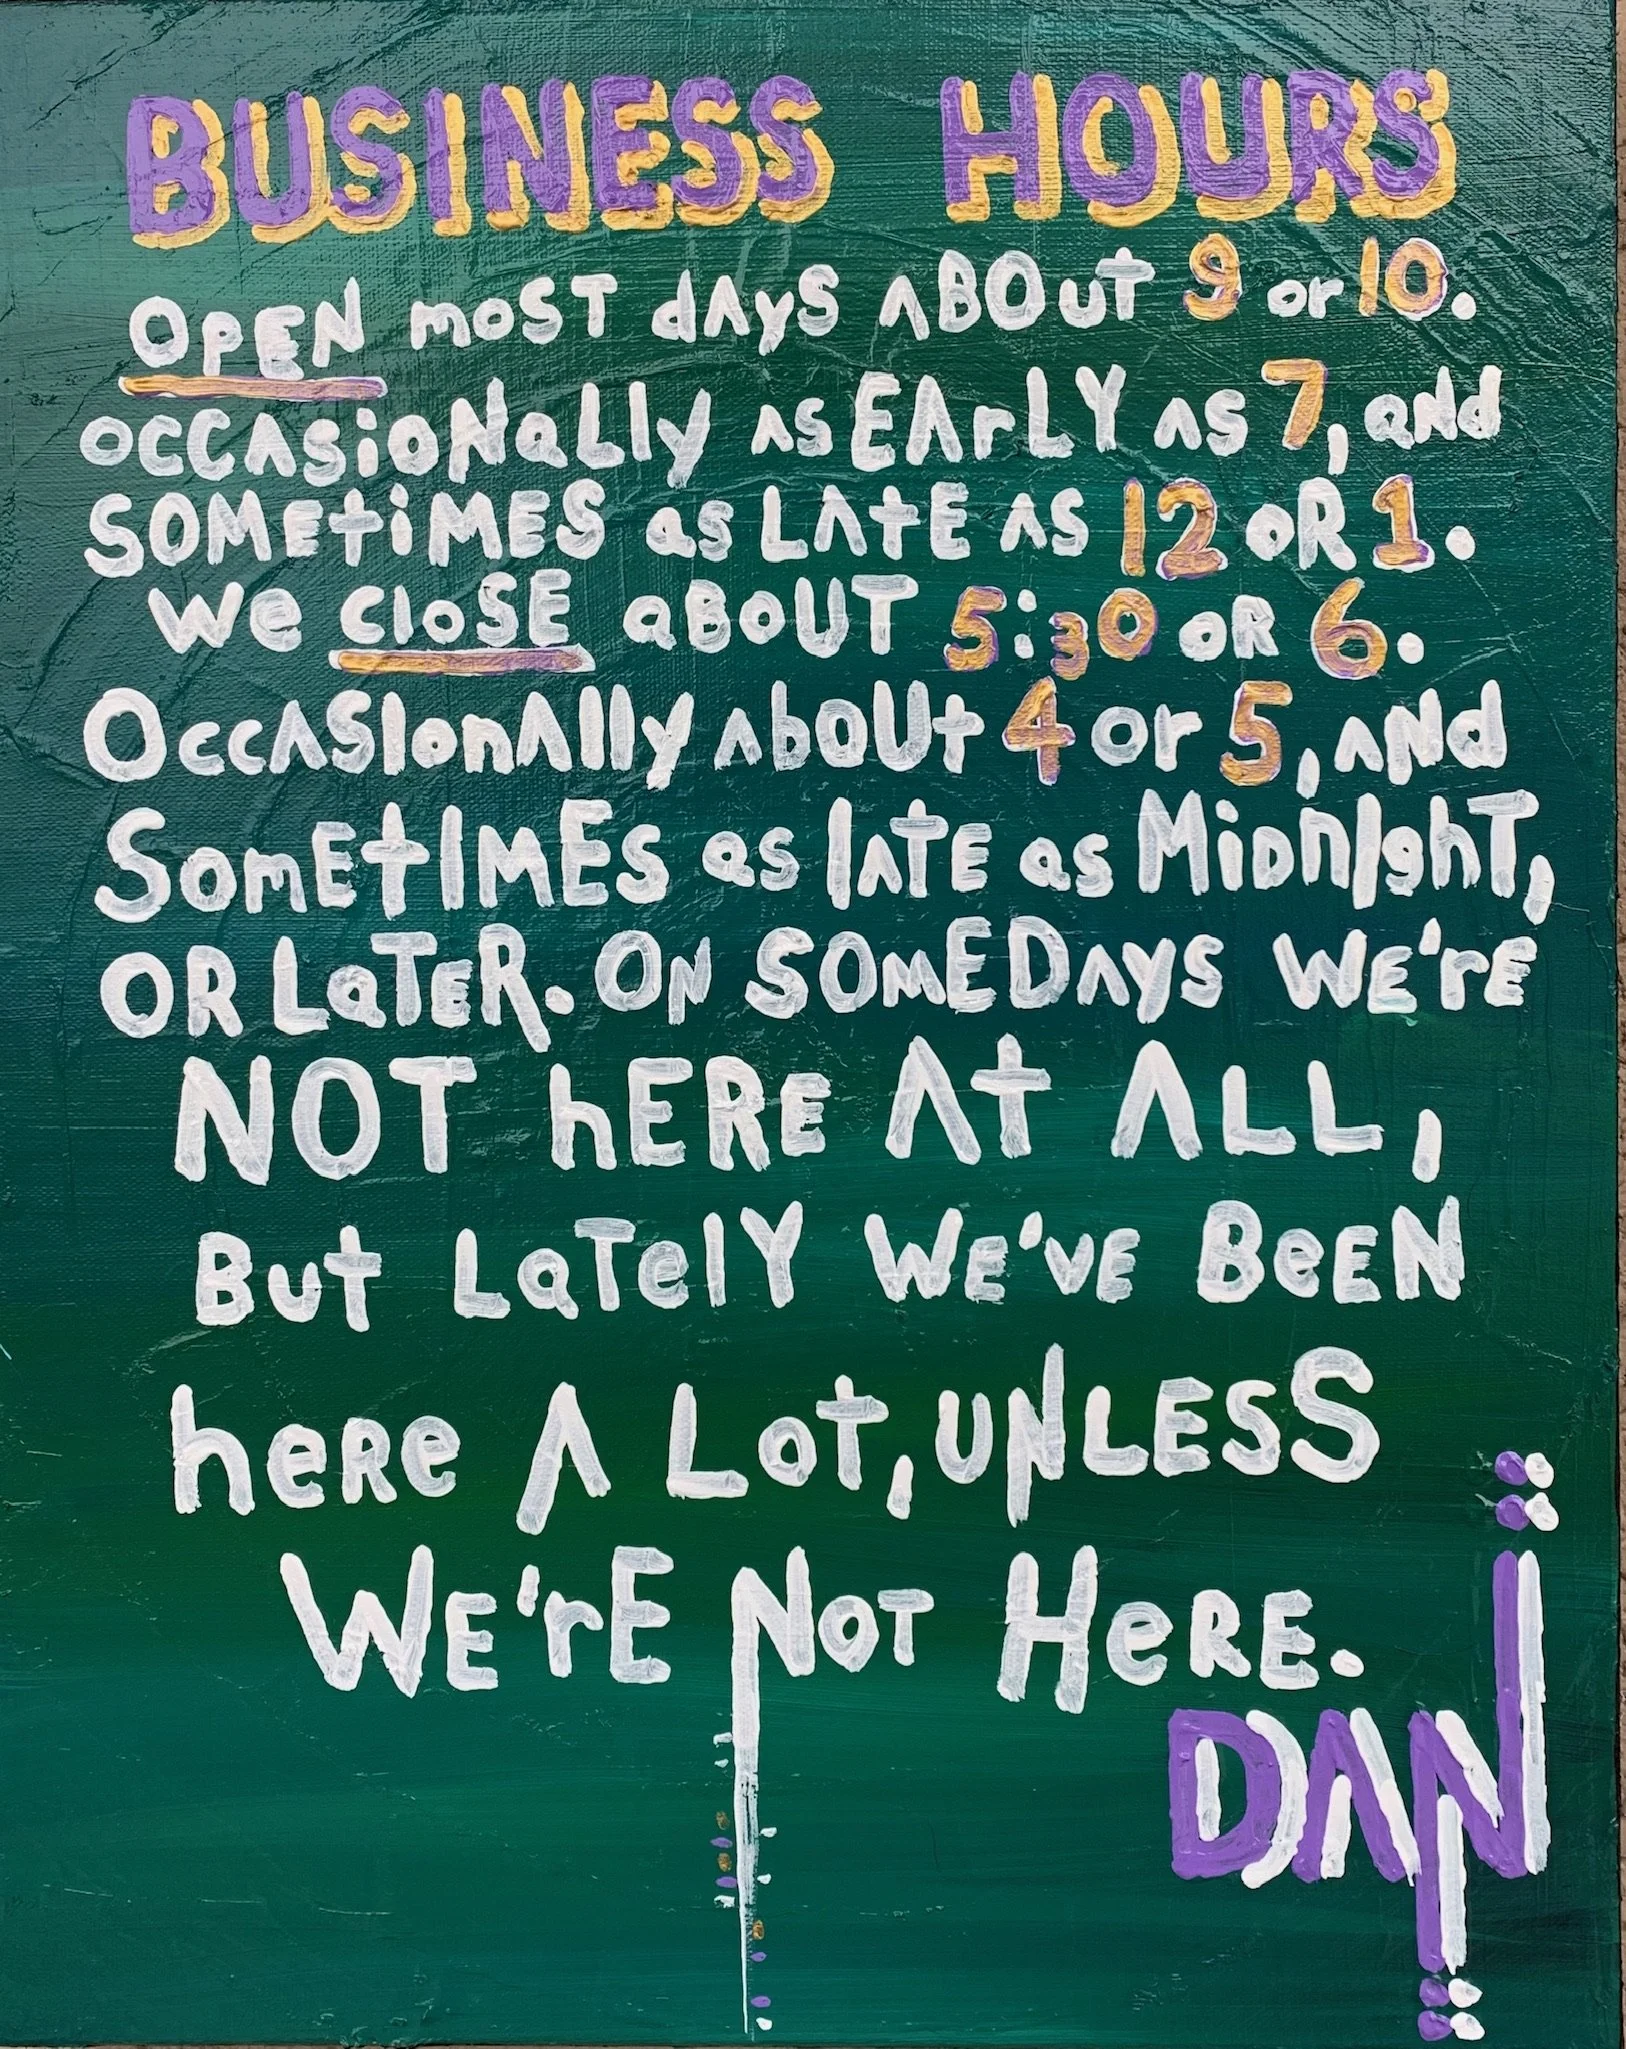 BUSINESS HOURS
OPEN mOST dAyS ABOUT 9 or 10.
OCCASioNaLly AS EArLY AS 7, aNd
SOMEtiMES as LAtE AS 12 oR 1.
We CloSE aBoUT 5:30 oR 6.
OccASIonAlly AboUt 4 or 5, ANd
SomEtIMEs as lATE as MiDnIghT,
OR LaTER. ON SOMEDAYS WE'rE
NOT hERE At ALL,
But LaTelY WE'VE BeEN
heRe A Lot, UNLESS
WE'rE NoT HeRE.
DAN